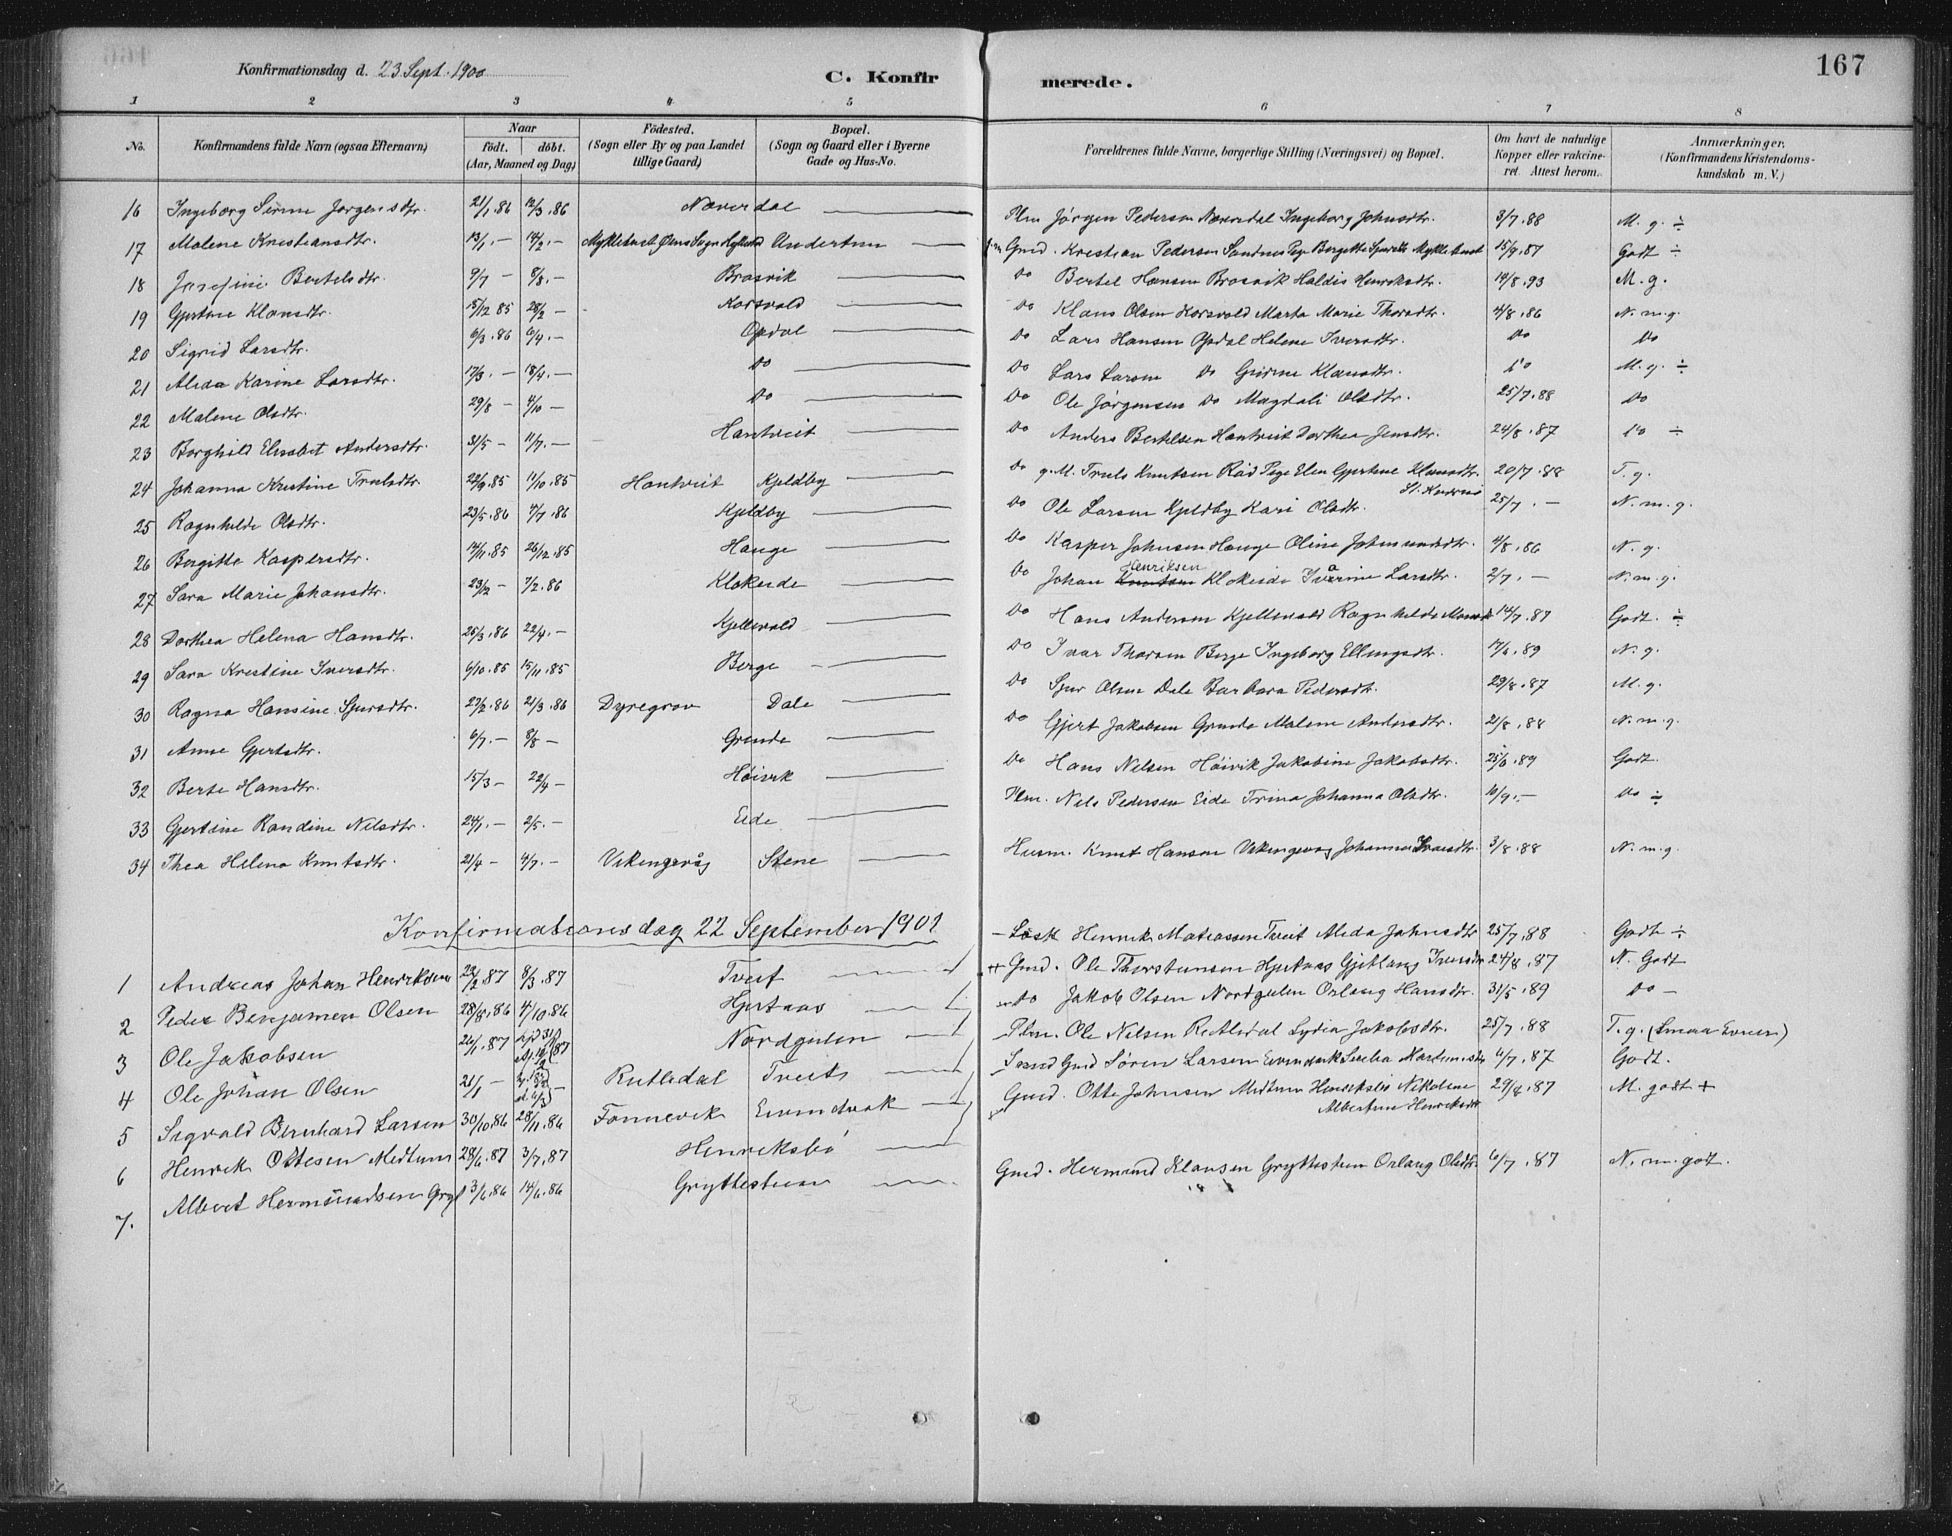 Konfirmationsdag d. 23 Sept. 1900
C. Konfirmerede.
167
1 2 3 4 5 6 7 8
No. Konfirmandens fulde Navn (ogsaa Efternavn) Naar födt. döbt. (Aar, Maaned og Dag) Födested. (Sogn eller By og paa Landet tillige Gaard) Bopæl. (Sogn og Gaard eller i Byerne Gade og Hus-No. Forældrenes fulde Navne, borgerlige Stilling (Næringsvei) og Bopæl. Om havt de naturlige Kopper eller vakcineret. Attest herom. Anmærkninger. (Konfirmandens Kristendomskundskab m. V.)
16 Ingeborg Jørgensdtr. 21/1.86 12/3.86 Næverdal Plm Jørgen Pedersen Næverdal Ingeborg Johnsdtr. 3/7.88 M. g. ÷
17 Malene Kristiansdtr. 13/1.— 14/2.— Andertun Gmd. Kristian Pedersen 15/9.87 Godt ÷
18 Josefine Bertelsdtr. 9/7 — 8/8.— Brosvik Do Bertel Hansen Brosvik Haldis Henriksdtr. 14/8.93 M. g.
19 Gjertine Klausdtr. 15/12 85 28/2 — Korsvold Do Klaus Olsen Korsvold Marta Marie Thorsdtr. 4/8.86 N. m. g.
20 Sigrid Larsdtr. 6/3.86 6/4.— Opdal Do Lars Hansen Opdal Helene Iversdtr. Do Do
21 Alida Karine Larsdtr. 17/3.— 18/4.— Do Do Lars Larsen Do Klausdtr. Do M. g. ÷
22 Malene Olsdtr. 29/8 — 4/10 — Do Do Ole Jørgensen Do Magdali Olsdtr. 25/7.88 Do
23 Borghild Elisabet Andersdtr. 31/5 — 11/7.— Hantveit Do Anders Bertelsen Hantveit Dorthea Jensdtr. 24/8.87 Do ÷
24 Johanna Kristine Trulsdtr. 22/9.85 11/10.85 Hantveit Kjeldby Do g. M. Truls Knutsen Pige Elen Gjertine Klausdtr. 20/7.88 T. g.
25 Ragnhilde Olsdtr. 23/5.86 7/7.86 Kjeldby Do Ole Larsen Kjeldby Kari Olsdtr. 25/7.— N. m. g.
26 Bergitte Kaspersdtr. 14/11.85 26/12.85 Hauge Do Kasper Johnsen Hauge Oline 4/8.86 N. g.
27 Sara Marie Johansdtr. 23/12 — 7/2.86 Klokeide Do Johan Henriksen Klokeide Larsdtr. 2/7.— N. m. g.
28 Dorthea Helena Hansdtr. 25/3.86 22/4.— Kjellevold Do Hans Andersen Kjellevold Ragnhilde 14/7.87 Godt. ÷
29 Sara Kristine Iversdtr. 6/10.85 15/11.85 Berge — Do Ivar Thorsen Berge Ingeborg Ellingsdtr. 17/6.89 N. g.
30 Ragna Hansine Sjursdtr. 27/2.86 21/3.86 Dyregrov Dale — Do Sjur Olsen Dale Barbara Pedersdtr. 29/8.87 M. g.
31 Anne Gjertsdtr. 6/7.— 8/8 — Grinde Do Gjert Jakobsen Grinde Malene Andersdtr. 21/8.88 N. m. g.
32 Berte Hansdtr. 15/3 — 22/4 — Høivik Do Hans Nilsen Høivik Jakobine Jakobsdtr. 25/6.89 Godt.
33 Gjertine Randine Nilsdtr. 24/1.— 2/5.— Eide Plm. Nils Pedersen Eide Trina Johanna Olsdtr. 10/9.— Do ÷
34 Thea Helena Knutsdtr. 21/4 — 4/7.— Vikingevåg Stene Husm. Knut Hansen Vikingevåg Johanna 3/8.88 N. m. g.
Konfirmationsdag 22 September 1901
1 Andreas Johan Henriksen 22/2.87 8/3.87 Tveit Henrik Matiassen Tveit Alida Johnsdtr 25/7.88 Godt ÷
2 Peder Benjamen Olsen 28/8.86 4/10.86 Hjertaas Gmd. Ole Thorstensen Hjertaas Iversdtr 24/8.87 N. Godt
3 Ole Jakobsen 26/1.87 Nordgulen Do Jakob Olsen Nordgulen Orlaug Hansdtr. 31/5.89 Do —
4 Ole Johan Olsen 21/1 — Rutledal Tveit Plm. Ole Nilsen Rutledal Lydia Jakobsdtr. 25/7.88 T. g. (Smaa Evner)
5 Sigvald Bernhard Larsen 30/10.86 28/11.86 Fonnevik Eivindvik Gmd Søren Larsen Eivindvik 4/7.87 Godt.
6 Henrik Ottesen Midtun 28/6.87 3/7.87 Henriksbø Gmd. Otto Johnsen Midtun Henriksbø Nikoline 29/8.87 M. godt +
Albertine Henriksdtr
7. Albert Hermundsen Gryt 3/6.86 14/6.86 Gryttestuen Gmd. Hermund Klausen Gryttestuen Orlaug Olsdtr 6/7.87 N. m. godt.